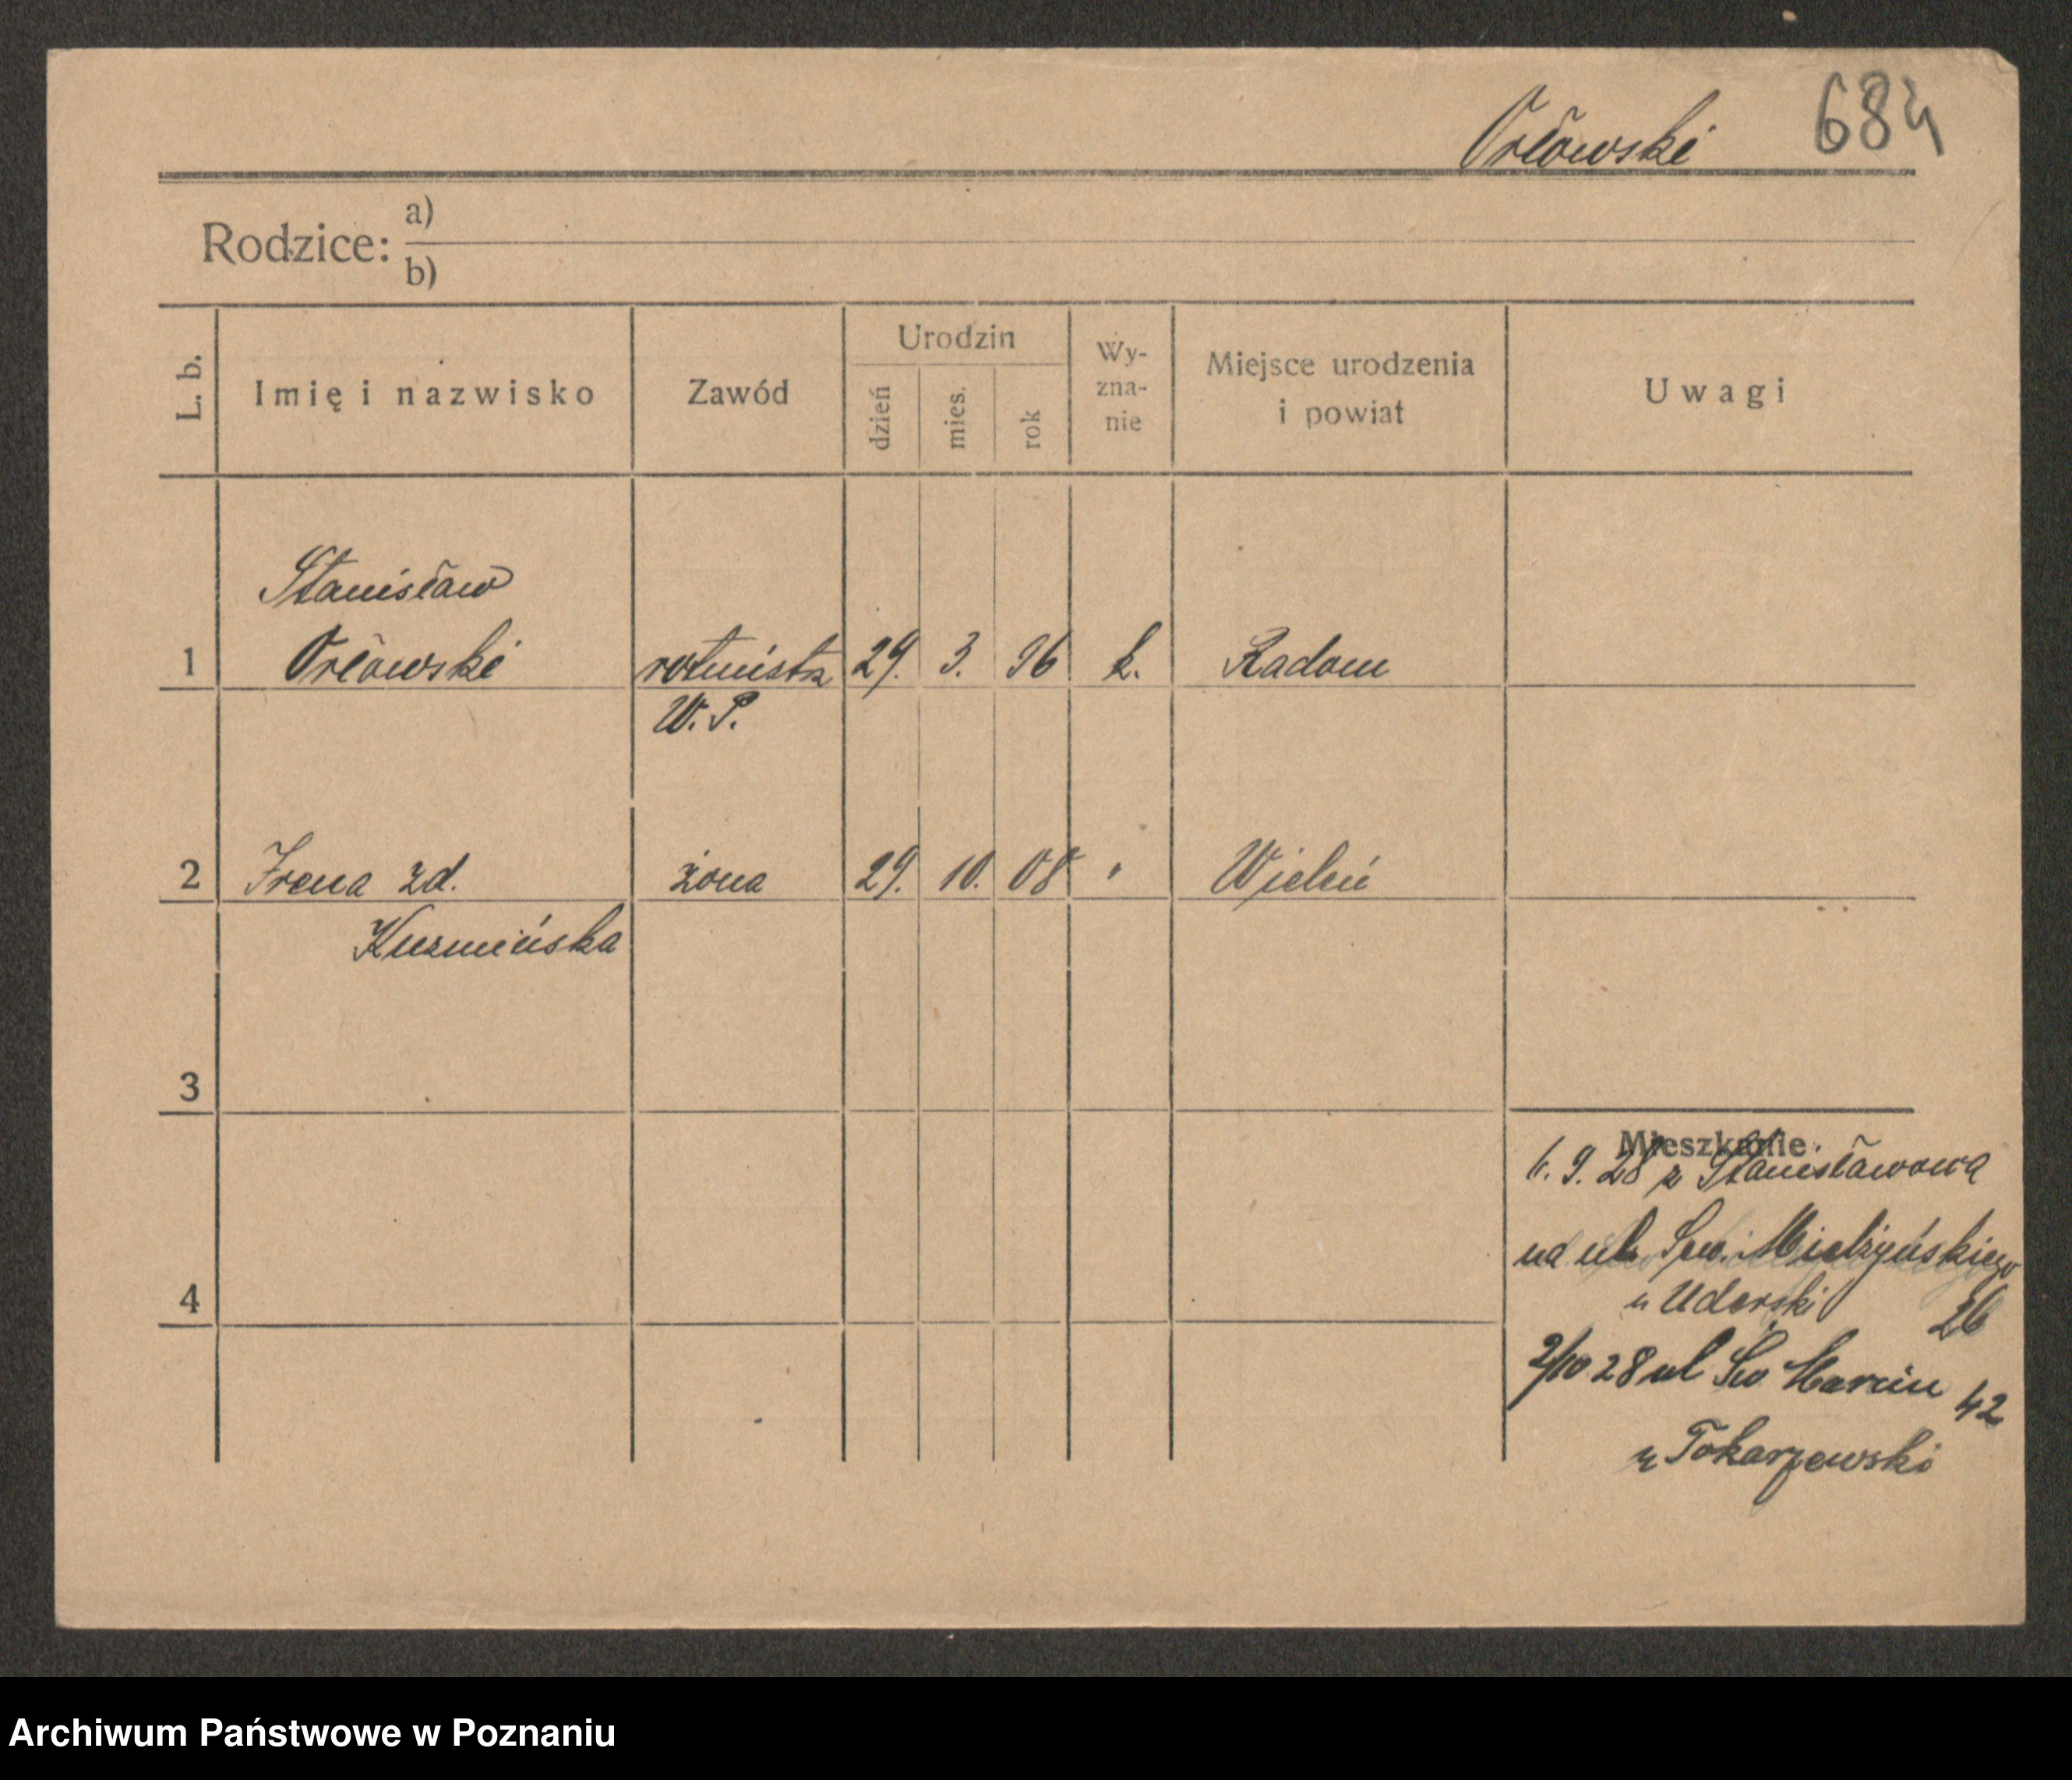 Orłowski 684
Rodzice: a)
b)
L. b. Imię i nazwisko Zawód Urodzin dzień mies. rok Wy-zna-nie Miejsce urodzenia i powiat Uwagi
Stanisław
1 Orłowski rotmistrz 29. 3. 96 k. Radom
W. P.
2 Irena zd. żona 29. 10. 08 " Wieleń
Kuzmińska
3
Mieszkanie
6. 9. 28 z Stanisławowa
na ul. Sew. Mielżyńskiego
4 u Uderski 26
2/10 28 ul Św Marcin 42
u Tokarzewski
Archiwum Państwowe w Poznaniu